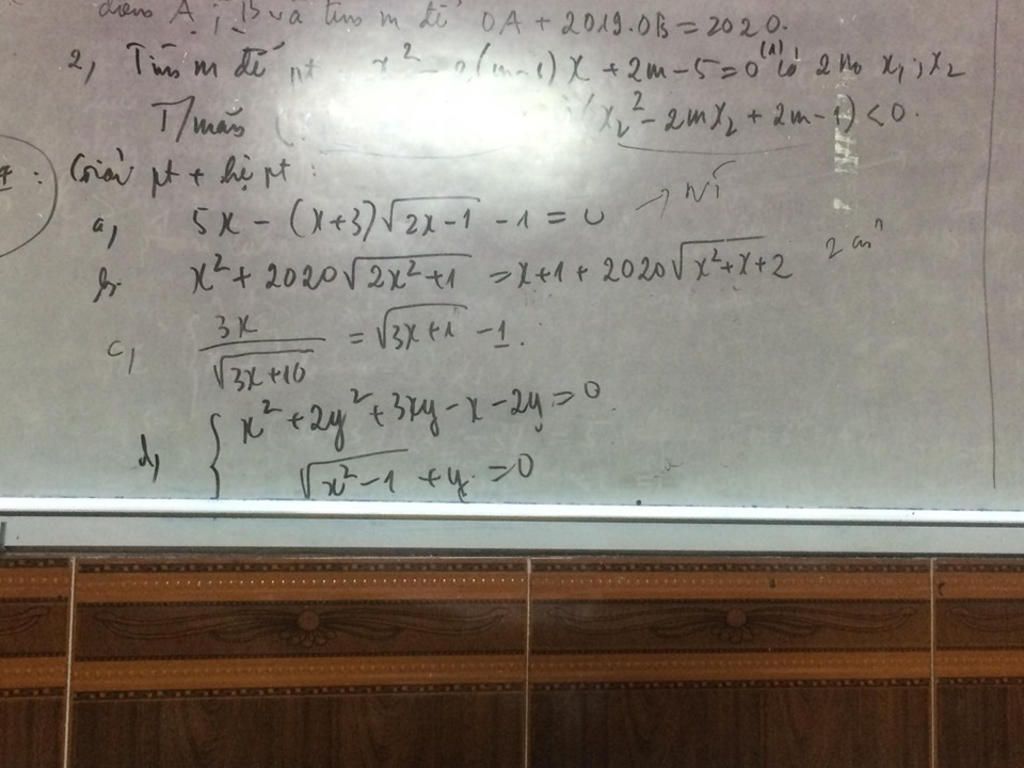 điểm A; B và tìm m để OA + 2019.OB = 2020.
2, Tìm m để pt x² - 2(m-1)x + 2m - 5 = 0 (1) có 2 no x₁; x₂
T/mãn (x₂² - 2mx₂ + 2m - 1) < 0.
4: Giải pt + hệ pt:
a, 5x - (x+3)√(2x-1) - 1 = 0 → NT
b. x² + 2020√(2x²+1) = x + 1 + 2020√(x²+x+2) 2 ẩn
c, 3x/√(3x+10) = √(3x+1) - 1.
d, { x² + 2y² + 3xy - x - 2y = 0
√(x²-1) + y = 0